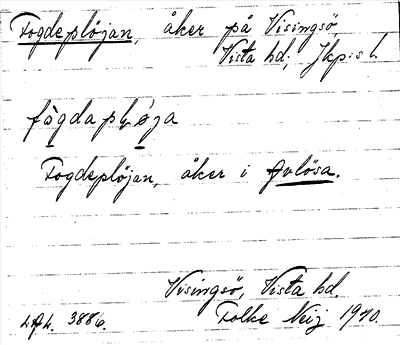 Fogdeplöjan, åker på Visingsö,
Vista hd; Jkp:s l.
fògdaplöja
Fogdeplöjan, åker i Avlösa.
Visingsö, Vista hd.
Folke Neij 1940.
LAL. 3886.